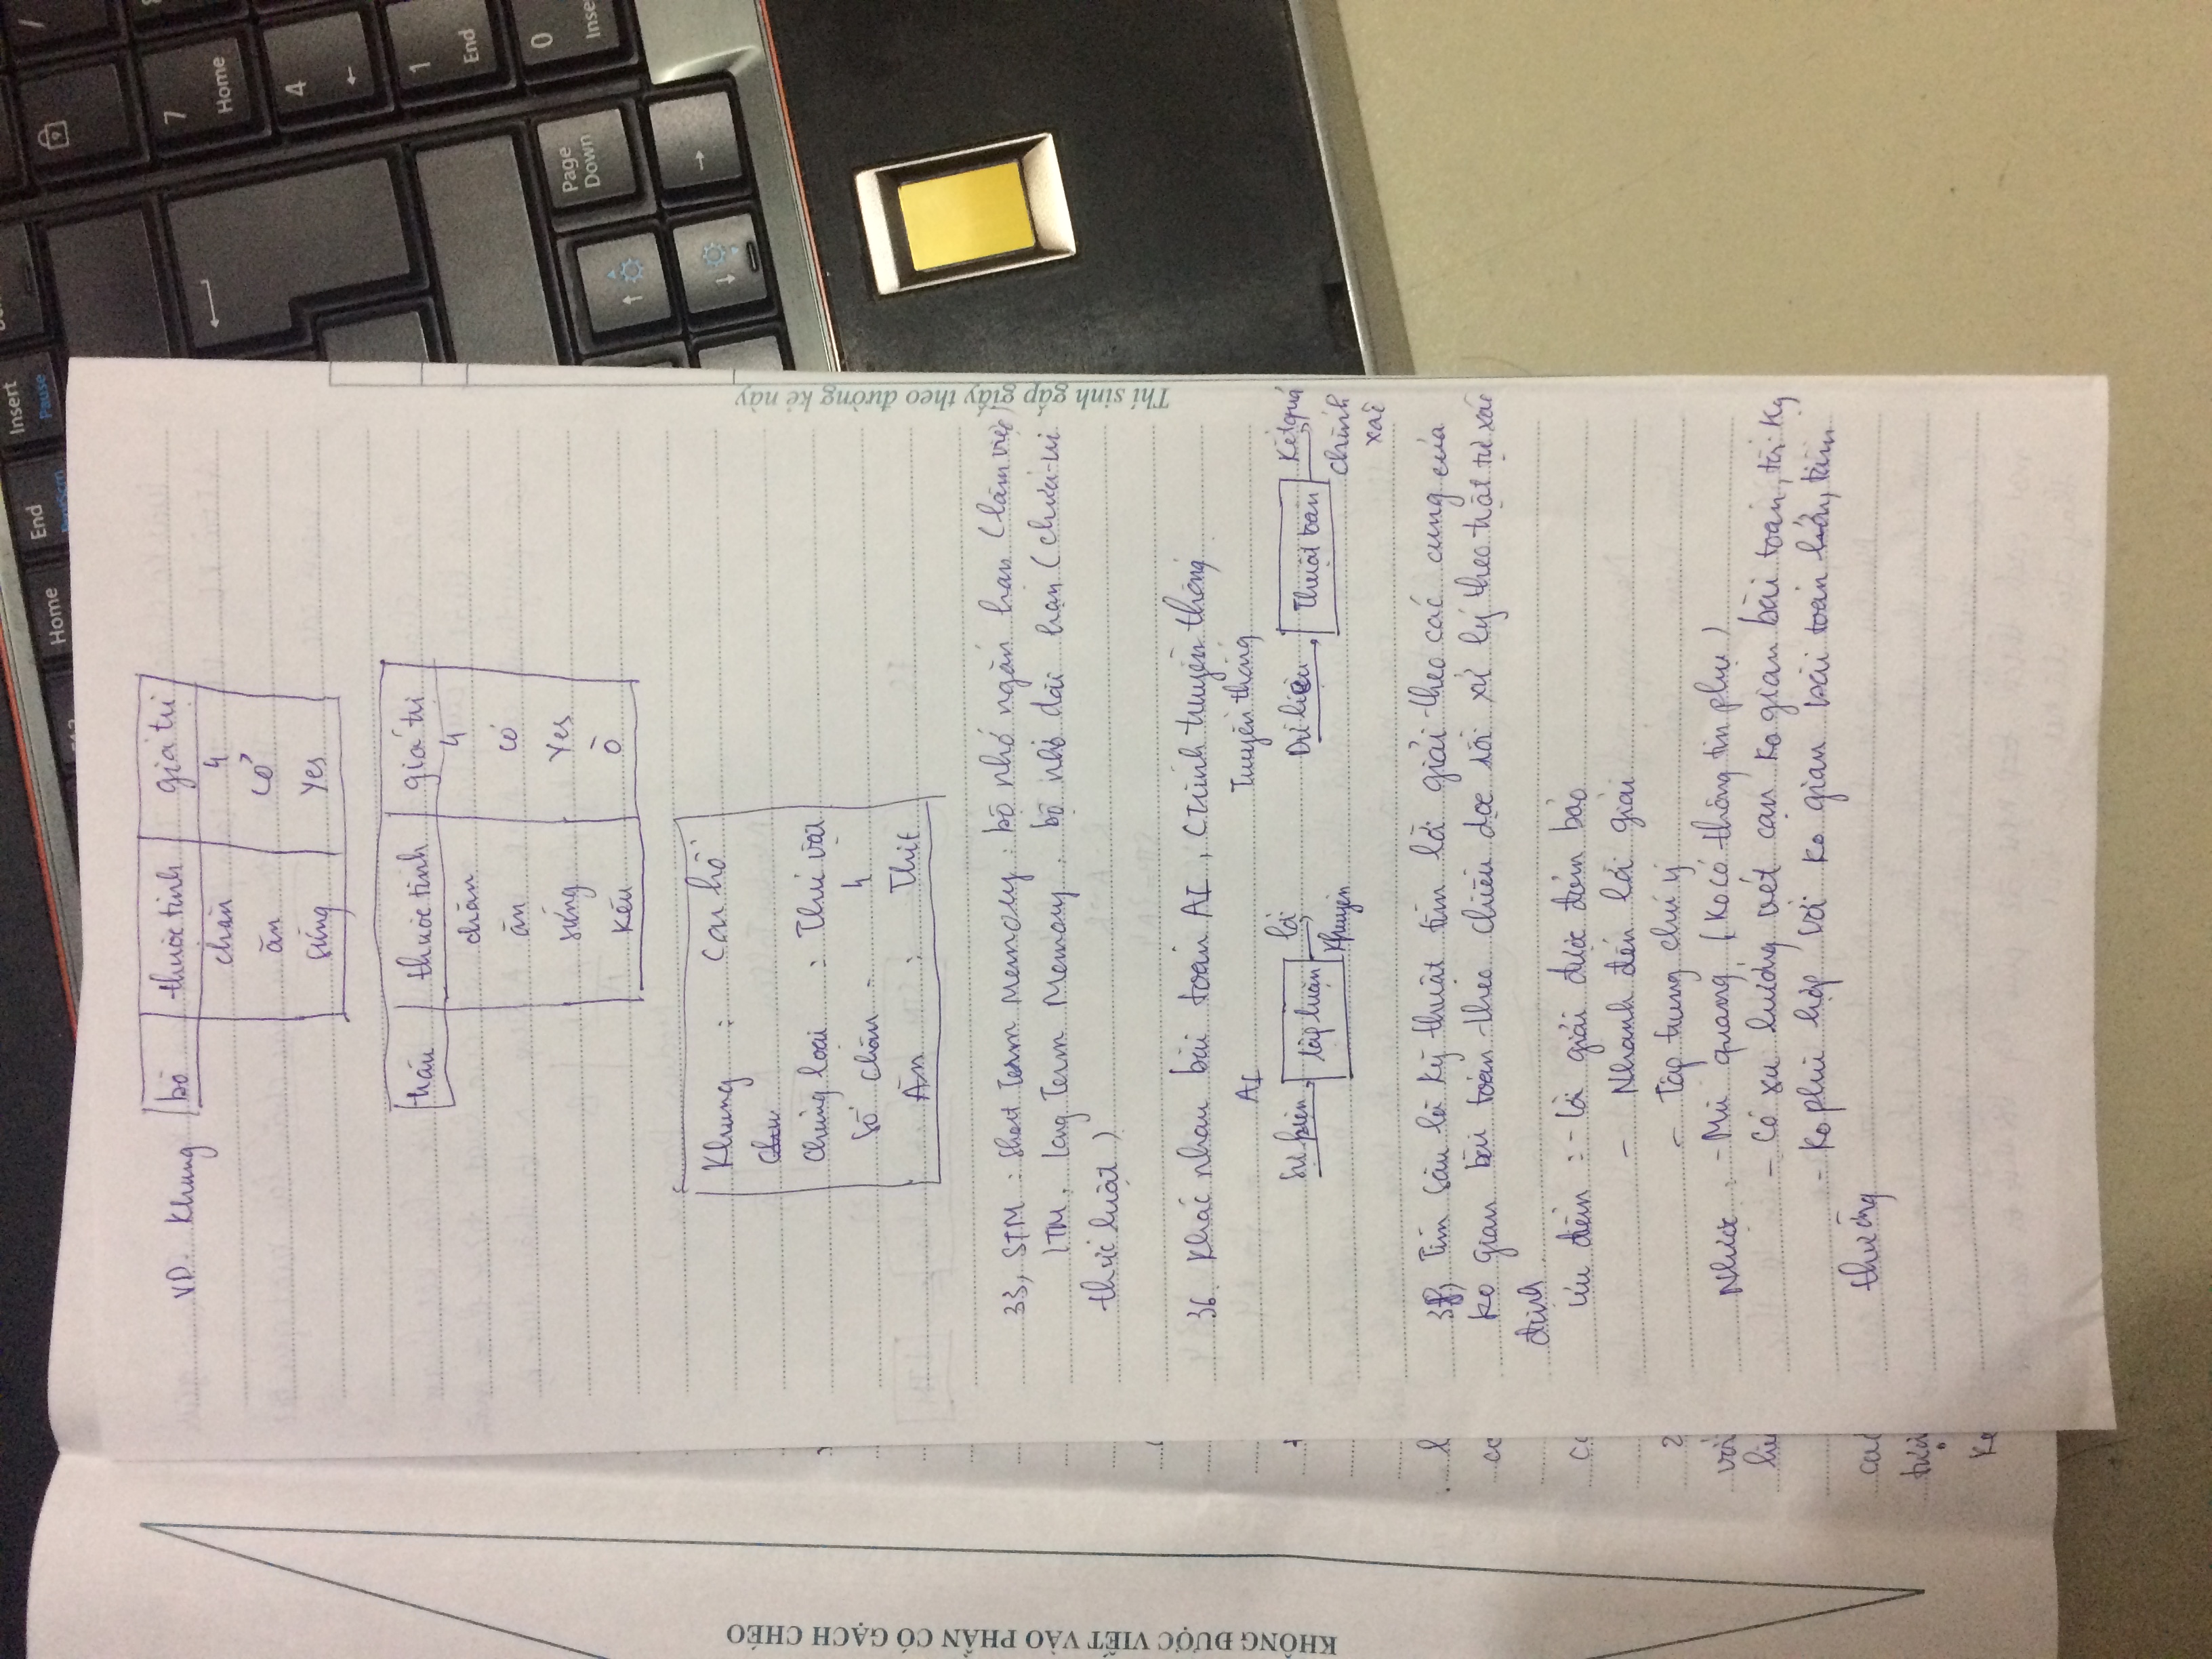 VD. Khung bò thuộc tính giá trị
chân 4
ăn cỏ
sừng Yes
trâu thuộc tính giá trị
chân 4
ăn cỏ
sừng Yes
kêu ò
Khung : Con hổ
Chủng loại : Thú vật
Số chân - 4
Ăn : Thịt
33, STM : Short Term Memory : bộ nhớ ngắn hạn (làm việc)
LTM. Long Term Memory. bộ nhớ dài hạn (chứa tri
thức luật)
36. Khác nhau bài toán AI, CTrình truyền thống
AI Truyền thống
Sự kiện lập luận lời khuyên Dữ liệu Thuật toán Kết quả
chính
xác
Tìm sâu là kỹ thuật tìm lời giải theo các cung của
ko gian bài toán theo chiều dọc rồi xử lý theo trật tự xác
định.
Ưu điểm : - Lời giải được đảm bảo
- Nhanh đến lời giải
- Tập trung chú ý
Nhược : - Mù quáng (Ko có thông tin phụ)
- Có xu hướng vét cạn ko gian bài toán,
- Ko phù hợp với ko gian bài toán lớn, tầm
thường
KHÔNG ĐƯỢC VIẾT VÀO PHẦN CÓ GẠCH CHÉO
Thí sinh gấp giấy theo đường kẻ này
Home
End
PrntScrn
Insert
Pause
7
Home
4
←
1
End
0
Inse
Page
Down